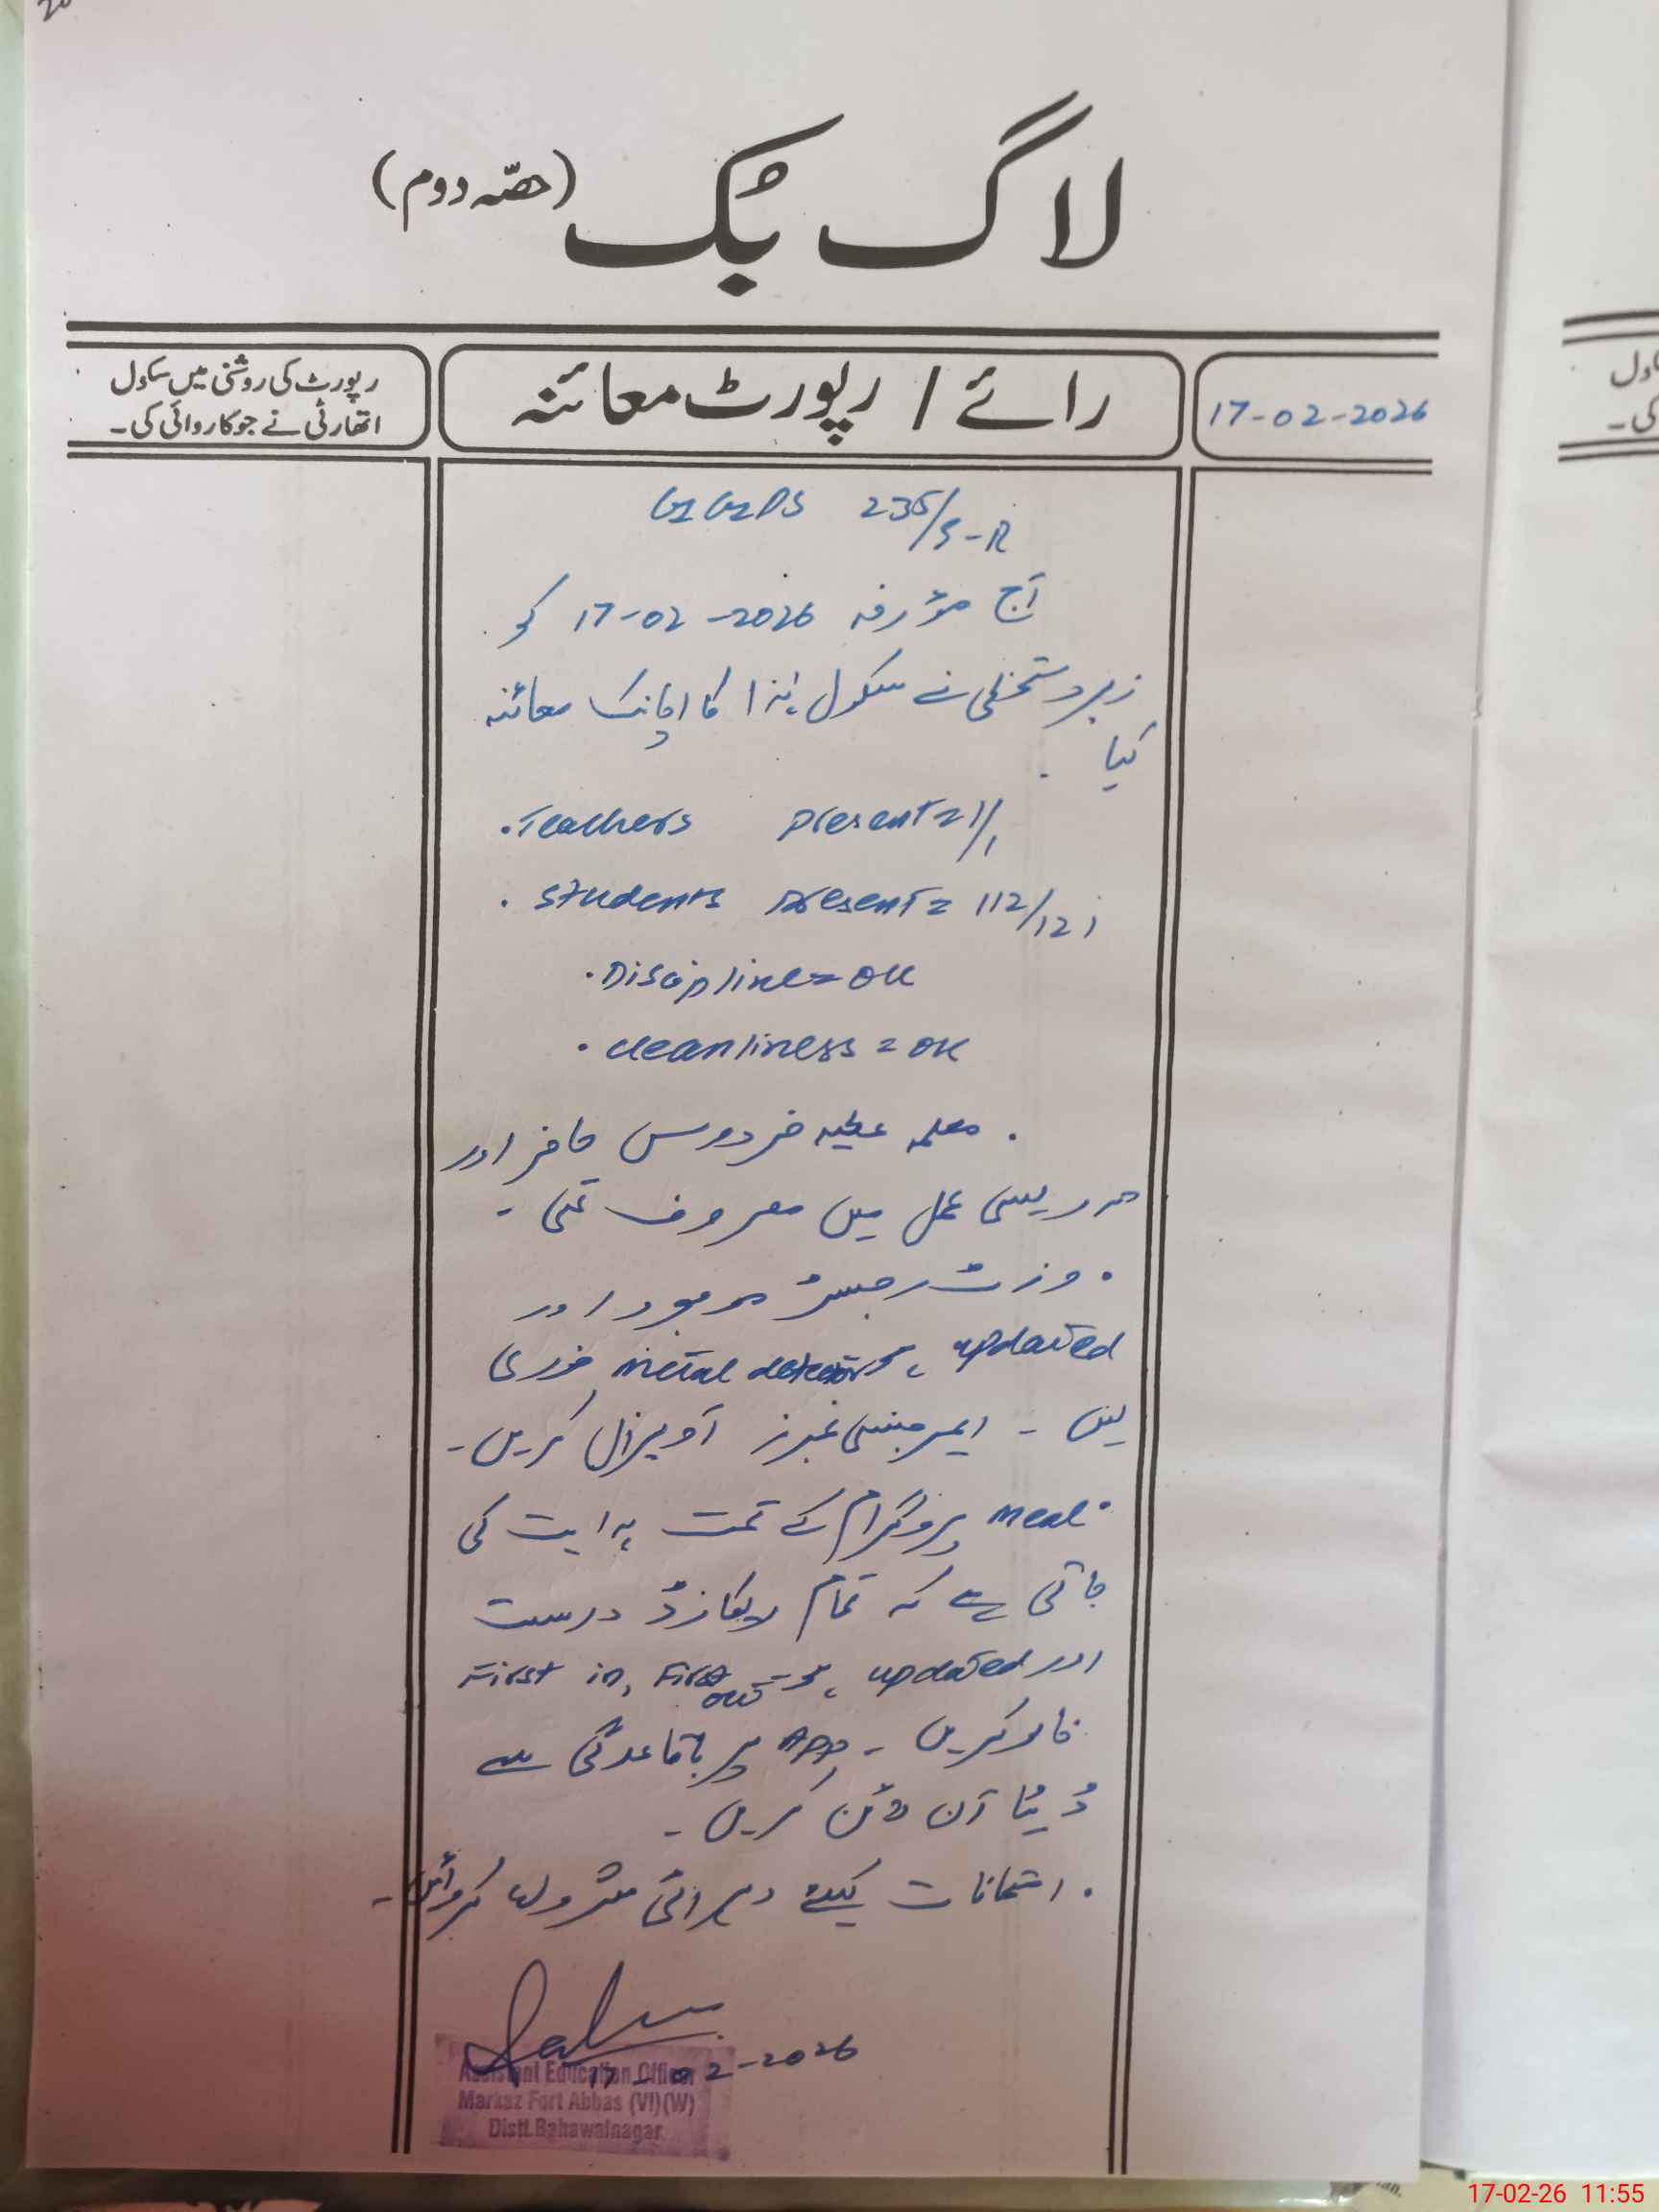 لاگ بُک (حصّہ دوم)
17-02-2026
رائے / رپورٹ معائنہ
رپورٹ کی روشنی میں سکول
اتھارٹی نے جو کاروائی کی۔
GGPS 235/9-R
آج مؤرخہ 17-02-2026 کو
زیر دستخطی نے سکول ہٰذا کا اچانک معائنہ
کیا
. Teachers present = 1/1
. Students present = 112/121
. Discipline = OK
. cleanliness = OK
. معلمہ عطیہ فردوس حاضر اور
تدریسی عمل میں مصروف تھی -
. وزٹ رجسٹر موجود اور
updated ہے، metal detector فوری
لیں - ایمرجنسی نمبرز آویزاں کریں -
. Meal پروگرام کے تحت ہدایت کی
جاتی ہے کہ تمام ریکارڈ درست
اور updated ہے، First in, First out
فالو کریں - App پر باقاعدگی سے
ڈیٹا آن لائن کریں -
. امتحانات کیلئے دہرائی شروع کروائیں -
17-02-2026
Assistant Education Officer
Markaz Fort Abbas (VI)(W)
Distt. Bahawalnagar
17-02-26 11:55